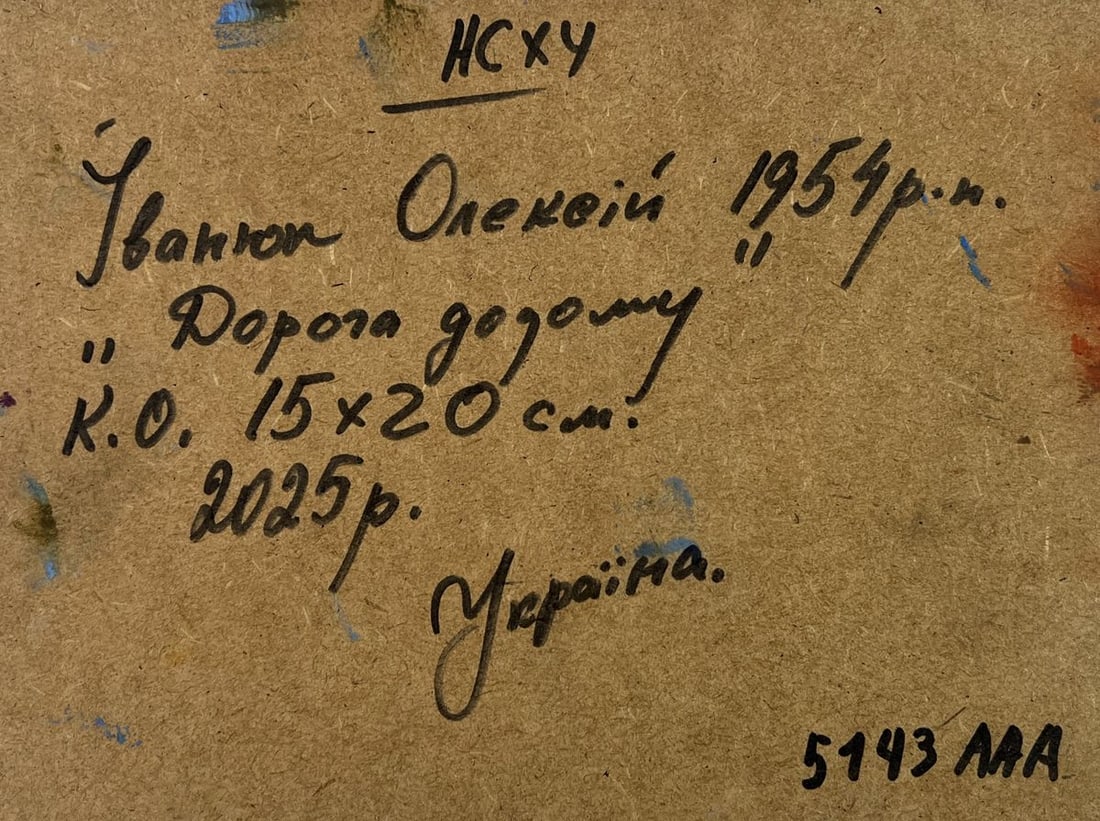 НСХУ
Іванюк Олексій 1954р.н.
„Дорога додому"
К.О. 15х20 см.
2025р.
Україна.
5143 ААА